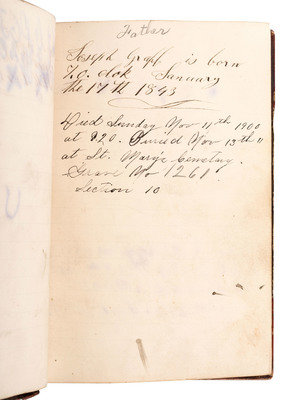 Father
Joseph Graff is born
7.o.clok January
the 17th 1843
Died Sunday Nov 11th 1900
at 920. Buried Nov 13th "
at St. Mary's Cemetary.
Grave No 1261.
Section 10